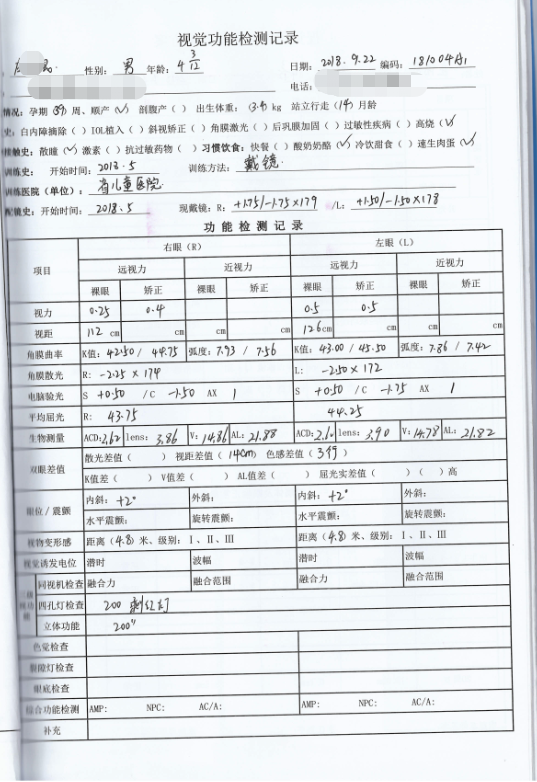 视觉功能检测记录
性别: 男 年龄: 4 3/12 日期: 2018.9.22 编码: 181004A1
电话:
情况: 孕期(39)周、顺产(√) 剖腹产( ) 出生体重: (3.4)kg 站立行走(14)月龄
史: 白内障摘除( ) IOL植入( ) 斜视矫正( ) 角膜激光( ) 后巩膜加固( ) 过敏性疾病( ) 高烧(√)
接触史: 散瞳(√) 激素( ) 抗过敏药物( ) 习惯饮食: 快餐( ) 酸奶奶酪(√) 冷饮甜食( ) 速生肉蛋(√)
训练史: 开始时间: 2018.5 训练方法: 戴镜.
训练医院(单位): 省儿童医院
配镜史: 开始时间: 2018.5 现戴镜: R: +1.75/-1.75×179 /L: +1.50/-1.50×178
功能检测记录
项目 右眼(R) 左眼(L)
远视力 近视力 远视力 近视力
裸眼 矫正 裸眼 矫正 裸眼 矫正 裸眼 矫正
视力 0.25 0.4 0.5 0.5
视距 112 cm cm cm cm 126 cm cm cm cm
角膜曲率 K值: 42.50 / 44.75 弧度: 7.93 / 7.56 K值: 43.00 / 45.50 弧度: 7.86 / 7.42
角膜散光 R: -2.25 × 174 L: -2.50 × 172
电脑验光 S +0.50 /C -1.50 AX 1 S +0.50 /C -1.75 AX 1
平均屈光 R: 43.75 44.25
生物测量 ACD: 2.62 lens: 3.86 V: 14.86 AL: 21.88 ACD: 2.60 lens: 3.90 V: 14.78 AL: 21.82
双眼差值 散光差值( ) 视距差值(14cm) 色感差值(3行)
K值差( ) V值差( ) AL值差( ) 屈光实差值( )( )高
眼位/震颤 内斜: +2° 外斜: 内斜: +2° 外斜:
水平震颤: 旋转震颤: 水平震颤: 旋转震颤:
视物变形感 距离(4.8)米、级别: I、II、III 距离(4.8)米、级别: I、II、III
视觉诱发电位 潜时 波幅 潜时 波幅
同视机检查 融合力 融合范围 融合力 融合范围
四孔灯检查 200 剩红灯
立体功能 200"
色觉检查
裂隙灯检查
眼底检查
综合功能检测 AMP: NPC: AC/A: AMP: NPC: AC/A:
补充